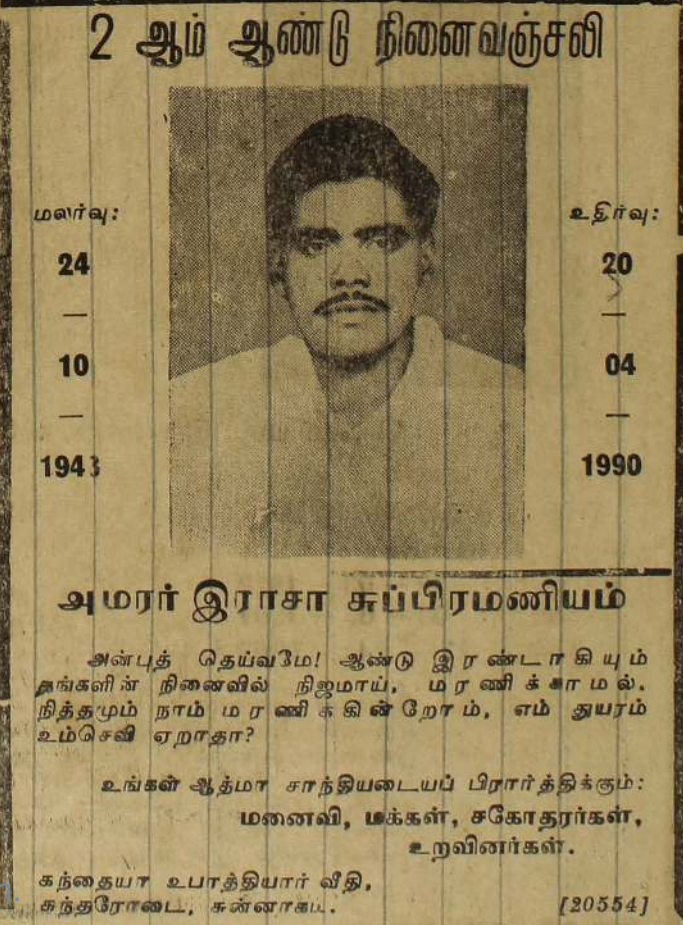 2 ஆம் ஆண்டு நினைவஞ்சலி
மலர்வு:
24
—
10
—
1943
உதிர்வு:
20
—
04
—
1990
அமரர் இராசா சுப்பிரமணியம்
அன்புத் தெய்வமே! ஆண்டு இரண்டாகியும்
தங்களின் நினைவில் நிஜமாய், மரணிக்காமல்.
நித்தமும் நாம் மரணிக்கின்றோம், எம் துயரம்
உம்செவி ஏறாதா?
உங்கள் ஆத்மா சாந்தியடையப் பிரார்த்திக்கும்:
மனைவி, மக்கள், சகோதரர்கள்,
உறவினர்கள்.
கந்தையா உபாத்தியார் வீதி,
கந்தரோடை, சுன்னாகம்.
[20554]